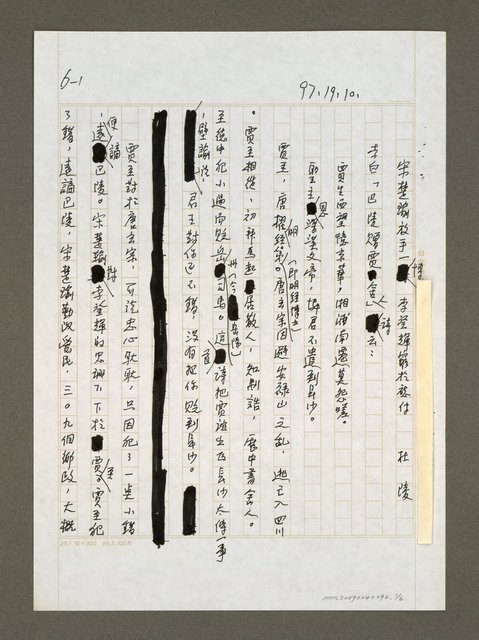 6-1
97.19.10.
宋楚瑜放手一搏 李登輝窮於應付
杜陵
李白「巴陵贈賈舍人」詩云：
賈生西望憶京華，湘浦南遷莫怨嗟。
聖主恩深漢文帝，憐君不遣到長沙。
賈至，唐擢明經第(即明經博士)。唐玄宗因避安祿山之亂，逃亡入四川
。賈至相從，初部為起居散人，知制誥，歷中書舍人。
至德中犯小過而貶岳州(今岳陽)司馬。這首詩把賈誼生在長沙太傅一事
，壁諭說，君王對你已不錯，沒有把你貶到長沙。
賈至對於唐玄宗，可說忠心耿耿，只因犯了一點小錯
，便遠謫巴陵。宋楚瑜對李登輝的忠誠不下於賈至，賈至犯
了錯，遠謫巴陵，宋楚瑜勤政愛民，三○九個鄉鎮，大概
25×10=300